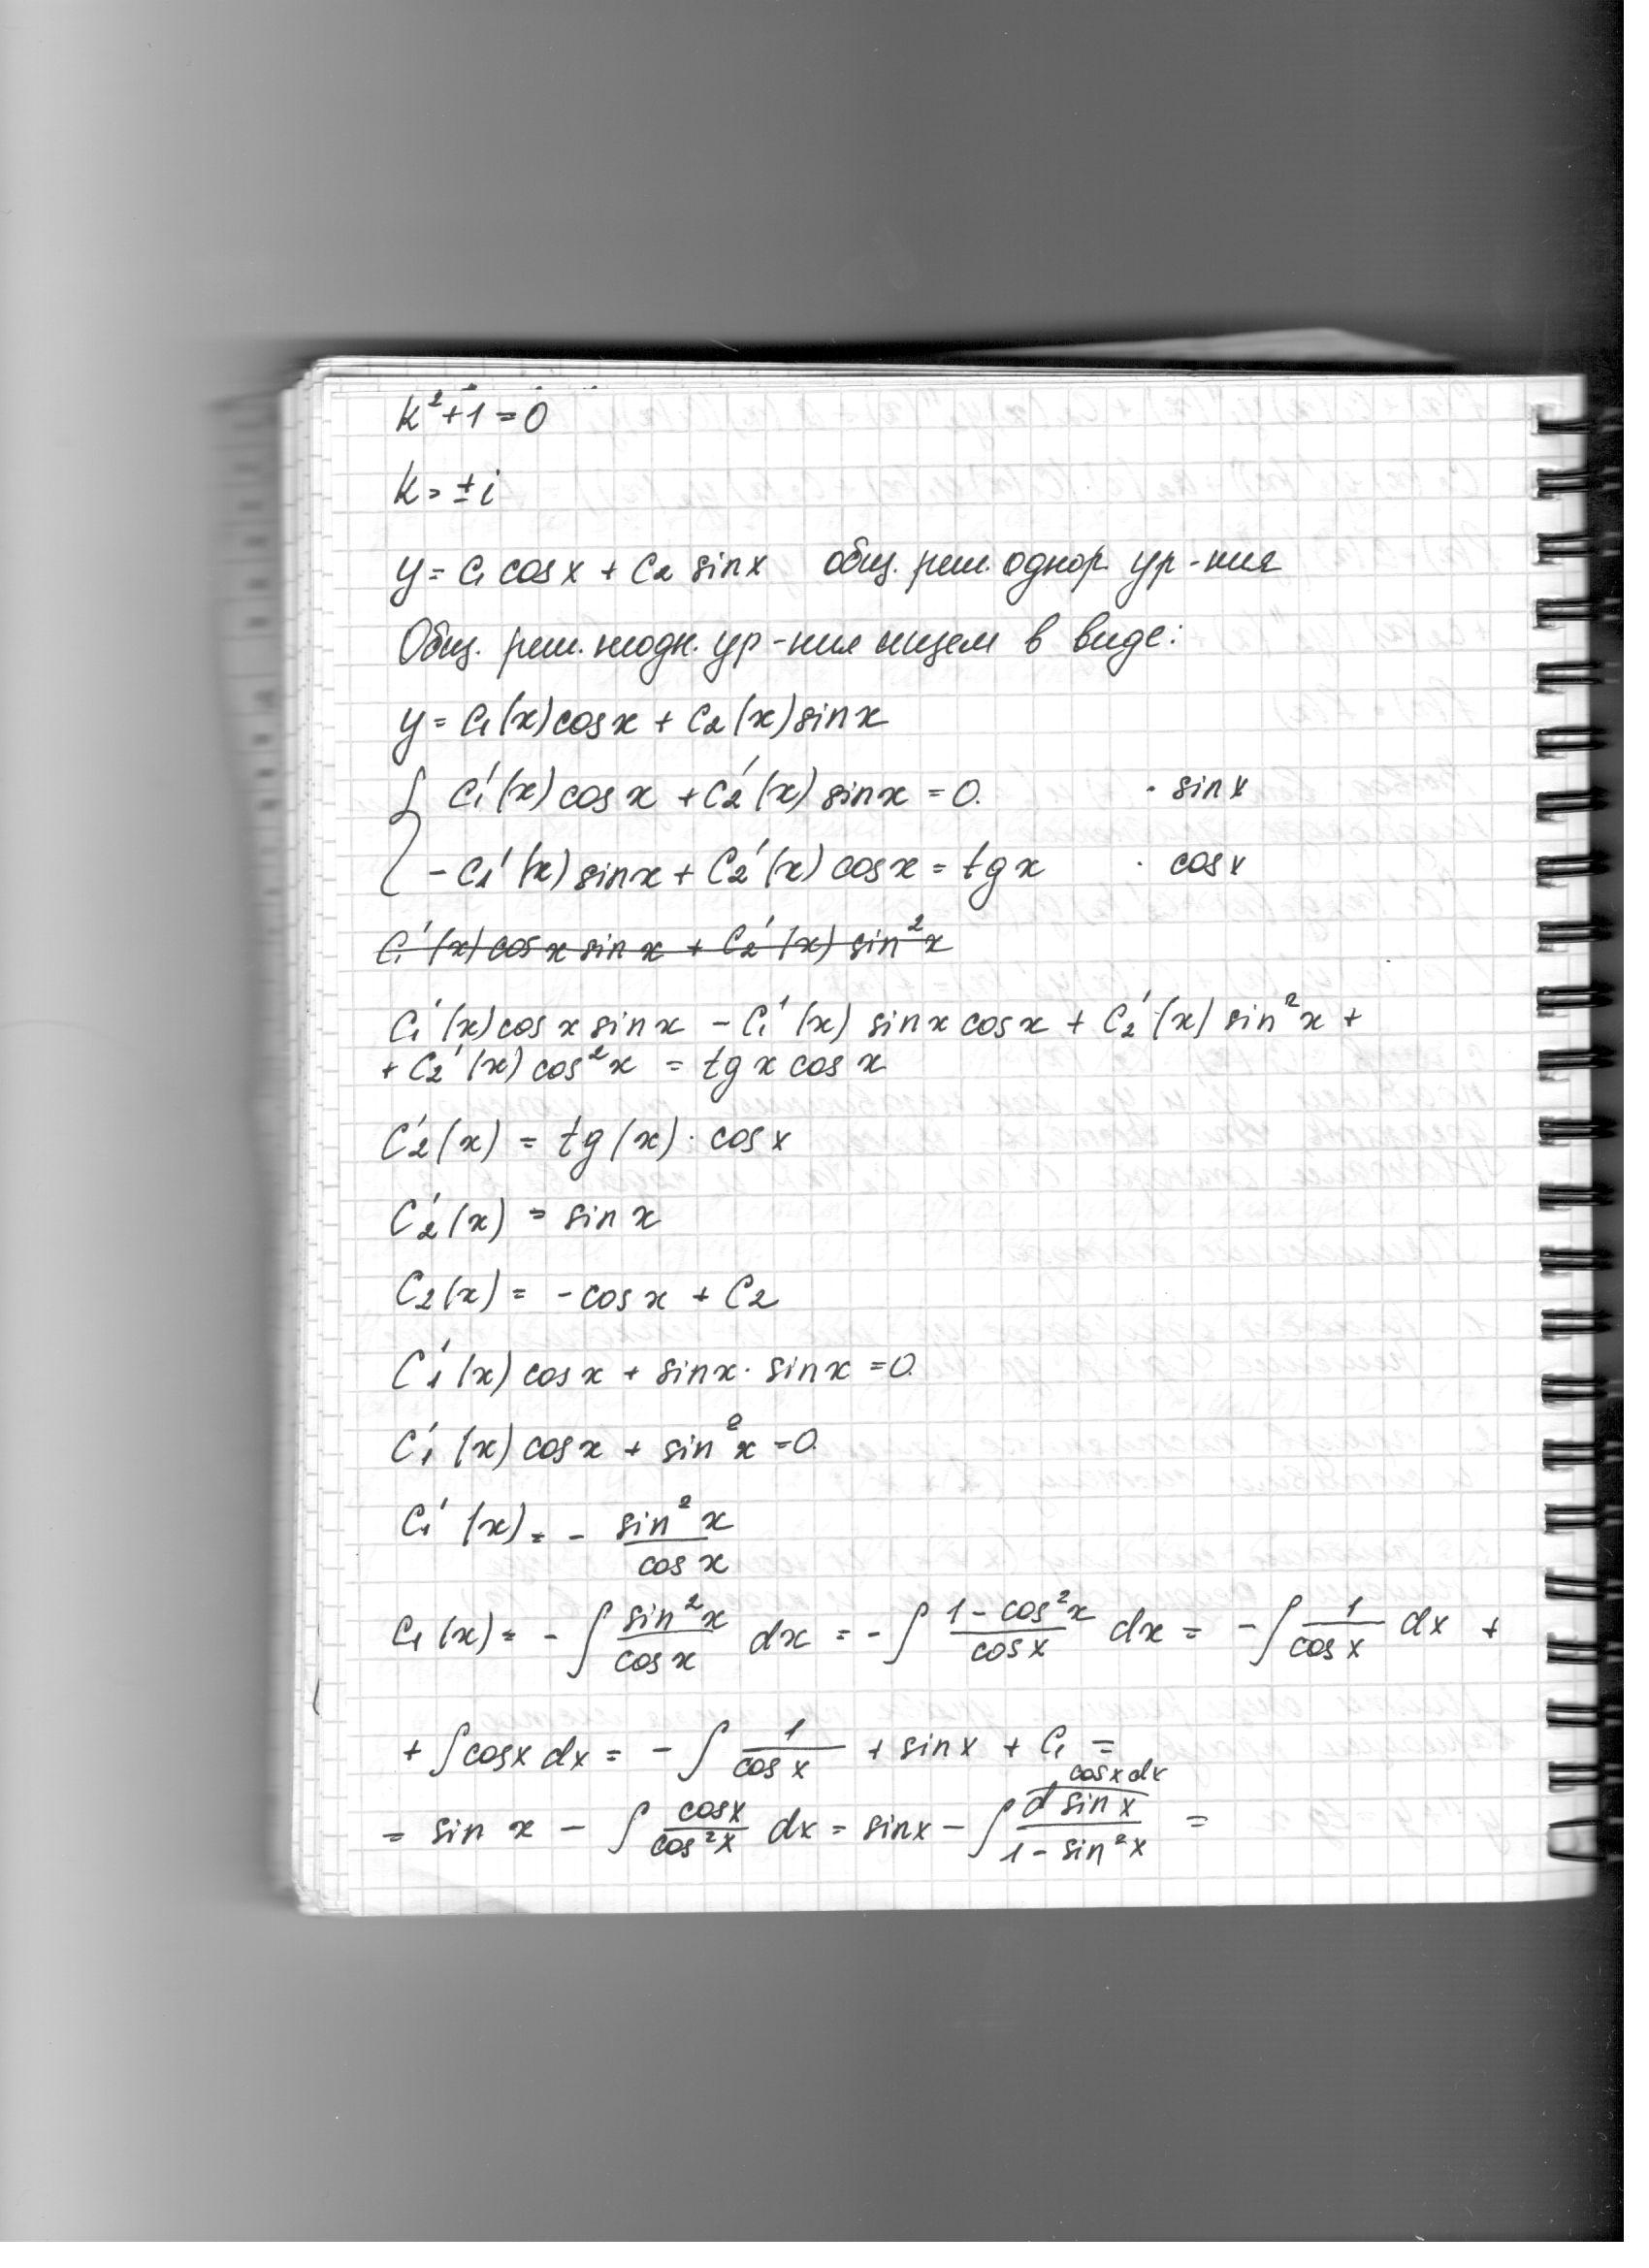 k²+1=0
k=±i
y=C₁cosx+C₂sinx общ. реш. однор. ур-ния
Общ. реш. неодн. ур-ния ищем в виде:
y=C₁(x)cosx+C₂(x)sinx
{ C₁'(x)cosx+C₂'(x)sinx=0. · sinx
-C₁'(x)sinx+C₂'(x)cosx=tgx · cosx
C₁'(x)cosxsinx+C₂'(x)sin²x
C₁'(x)cosxsinx-C₁'(x)sinxcosx+C₂'(x)sin²x+
+C₂'(x)cos²x=tgxcosx
C₂'(x)=tg(x)·cosx
C₂'(x)=sinx
C₂(x)=-cosx+C₂
C₁'(x)cosx+sinx·sinx=0.
C₁'(x)cosx+sin²x=0.
C₁'(x)=-sin²x/cosx
C₁(x)=-∫sin²x/cosx dx=-∫(1-cos²x)/cosx dx=-∫1/cosx dx+
+∫cosxdx=-∫1/cosx+sinx+C₁=
cosxdx
=sinx-∫cosx/cos²x dx=sinx-∫dsinx/(1-sin²x)=